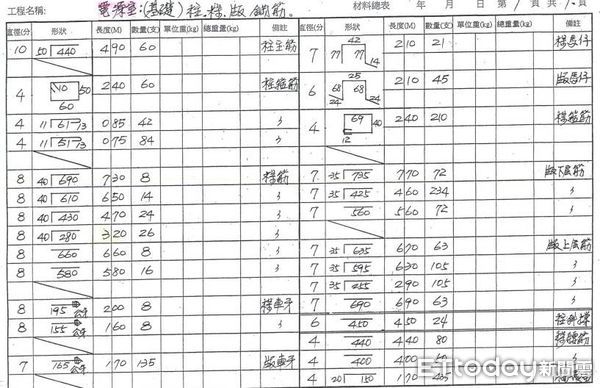 工程名稱: 電源室:(基礎)柱.樑.版/鋼筋. 材料總表 年 月 日 第 1 頁 共 頁
直徑(分) 形狀 長度(M) 數量(支) 單位重量(kg) 總重量(kg) 備註
10 50 440 490 60 柱主筋
4 10 50 60 240 60 柱箍筋
4 11 61 13 085 42 〃
4 11 51 13 075 84 〃
8 40 690 730 8 樑筋
8 40 610 650 14 〃
8 40 430 470 24 〃
8 40 280 320 26 〃
8 660 660 8 〃
8 580 580 16 〃
8 195 200 8 樑車牙
8 155 160 8 〃
7 165 170 135 版車牙
直徑(分) 形狀 長度(M) 數量(支) 單位重量(kg) 總重量(kg) 備註
7 42 77 77 14 210 21 樑馬仔
6 25 68 68 24 24 210 45 版馬仔
4 69 40 12 240 210 樑箍筋
7 35 735 770 72 版下層筋
7 35 425 460 234 〃
7 560 560 72 〃
7 35 635 670 63 版上層筋
7 35 595 630 105 〃
7 35 255 290 105 〃
7 690 690 63 〃
6 450 450 24 柱斜撐
4 440 440 80 樑腰筋
4 400 400 60
4 20 150 170
ETtoday新聞雲